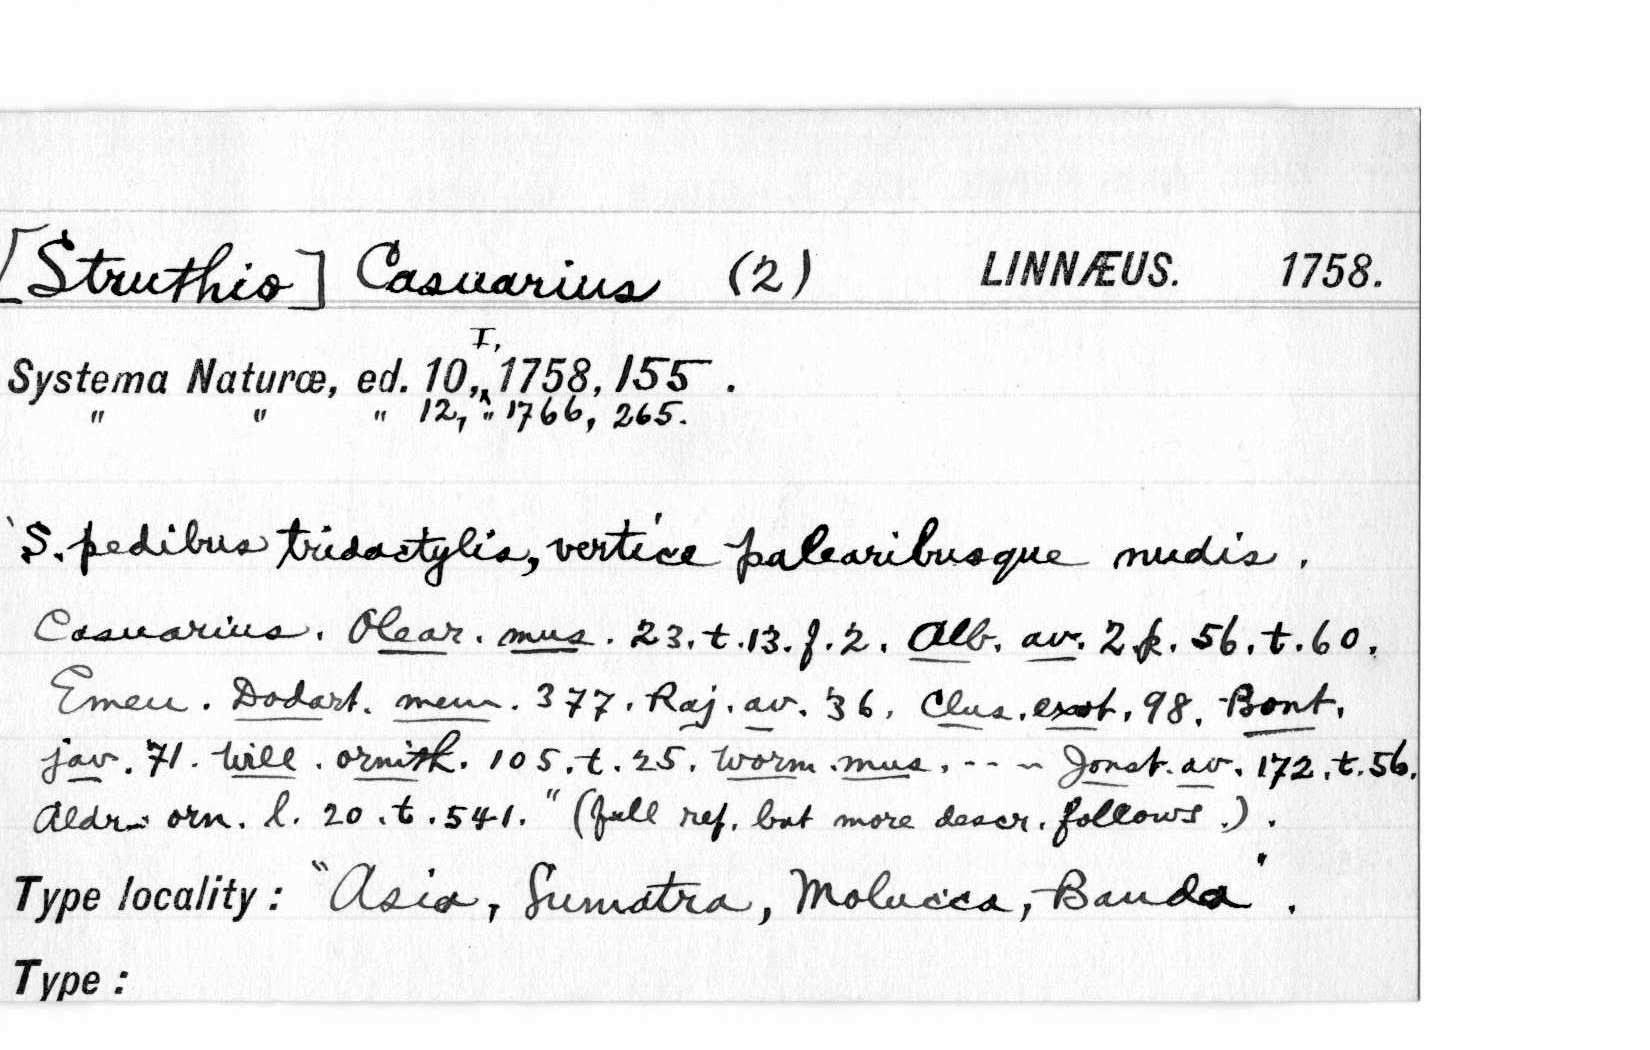 [Struthio] Casuarius (2) LINNÆUS. 1758.
I,
Systema Naturæ, ed. 10,‸ 1758, 155.
" " " 12, " 1766, 265.
`S. pedibus tridactylis, vertice palearibusque nudis.
Casuarius. Olear. mus. 23. t. 13. f. 2. Alb. av. 2 p. 56. t. 60.
Emeu. Dodart. mem. 377. Raj. av. 36. Clus. exot. 98. Bont.
jav. 71. Will. ornith. 105. t. 25. Worm. mus. --- Jonst. av. 172. t. 56.
Aldr. orn. l. 20. t. 541." (full ref. but more descr. follows.).
Type locality: "Asia, Sumatra, Molucca, Banda".
Type: